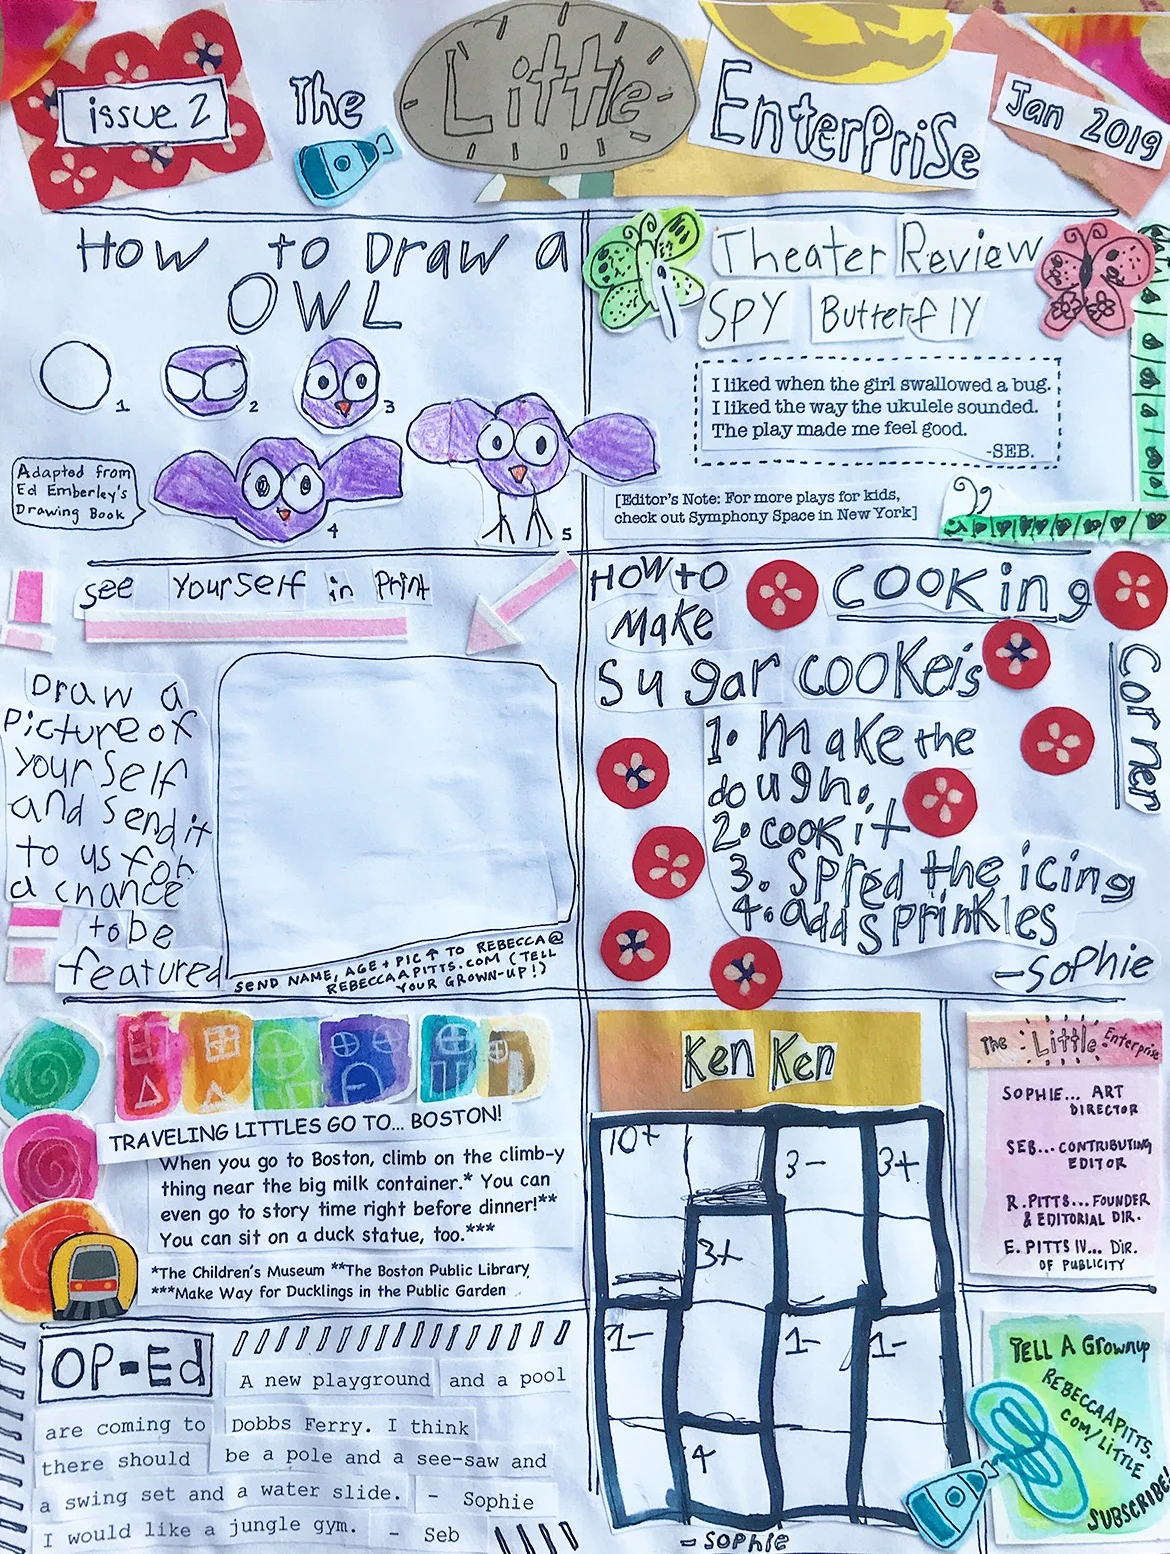 issue 2
The
Little
Enterprise
Jan 2019
How to Draw a
OWL
1
2
3
4
5
Adapted from
Ed Emberley's
Drawing Book
Theater Review
SPY Butterfly
I liked when the girl swallowed a bug.
I liked the way the ukulele sounded.
The play made me feel good.
-SEB.
[Editor's Note: For more plays for kids,
check out Symphony Space in New York]
See Yourself in Print
Draw a
picture of
yourself
and send it
to us for
a chance
to be
featured
SEND NAME, AGE + PIC ↑ TO REBECCA@
REBECCAAPITTS.COM (TELL
YOUR GROWN-UP!)
COOKing
Corner
HOW to
Make
Sugar cookeis
1. Make the
dough,
2. cook it
3. Spred the icing
4. add sprinkles
-Sophie
TRAVELING LITTLES GO TO... BOSTON!
When you go to Boston, climb on the climb-y
thing near the big milk container.* You can
even go to story time right before dinner!**
You can sit on a duck statue, too.***
*The Children's Museum **The Boston Public Library
***Make Way for Ducklings in the Public Garden
OP-Ed
A new playground and a pool
are coming to Dobbs Ferry. I think
there should be a pole and a see-saw and
a swing set and a water slide. - Sophie
I would like a jungle gym. - Seb
Ken Ken
10+
3-
3+
3+
1-
1-
1-
4
-SOPHIE
The Little Enterprise
SOPHIE... ART
DIRECTOR
SEB...CONTRIBUTING
EDITOR
R.PITTS...FOUNDER
& EDITORIAL DIR.
E. PITTS IV... DIR.
OF PUBLICITY
TELL A Grownup
REBECCAAPITTS.
COM/LITTLE
SUBSCRIBE!